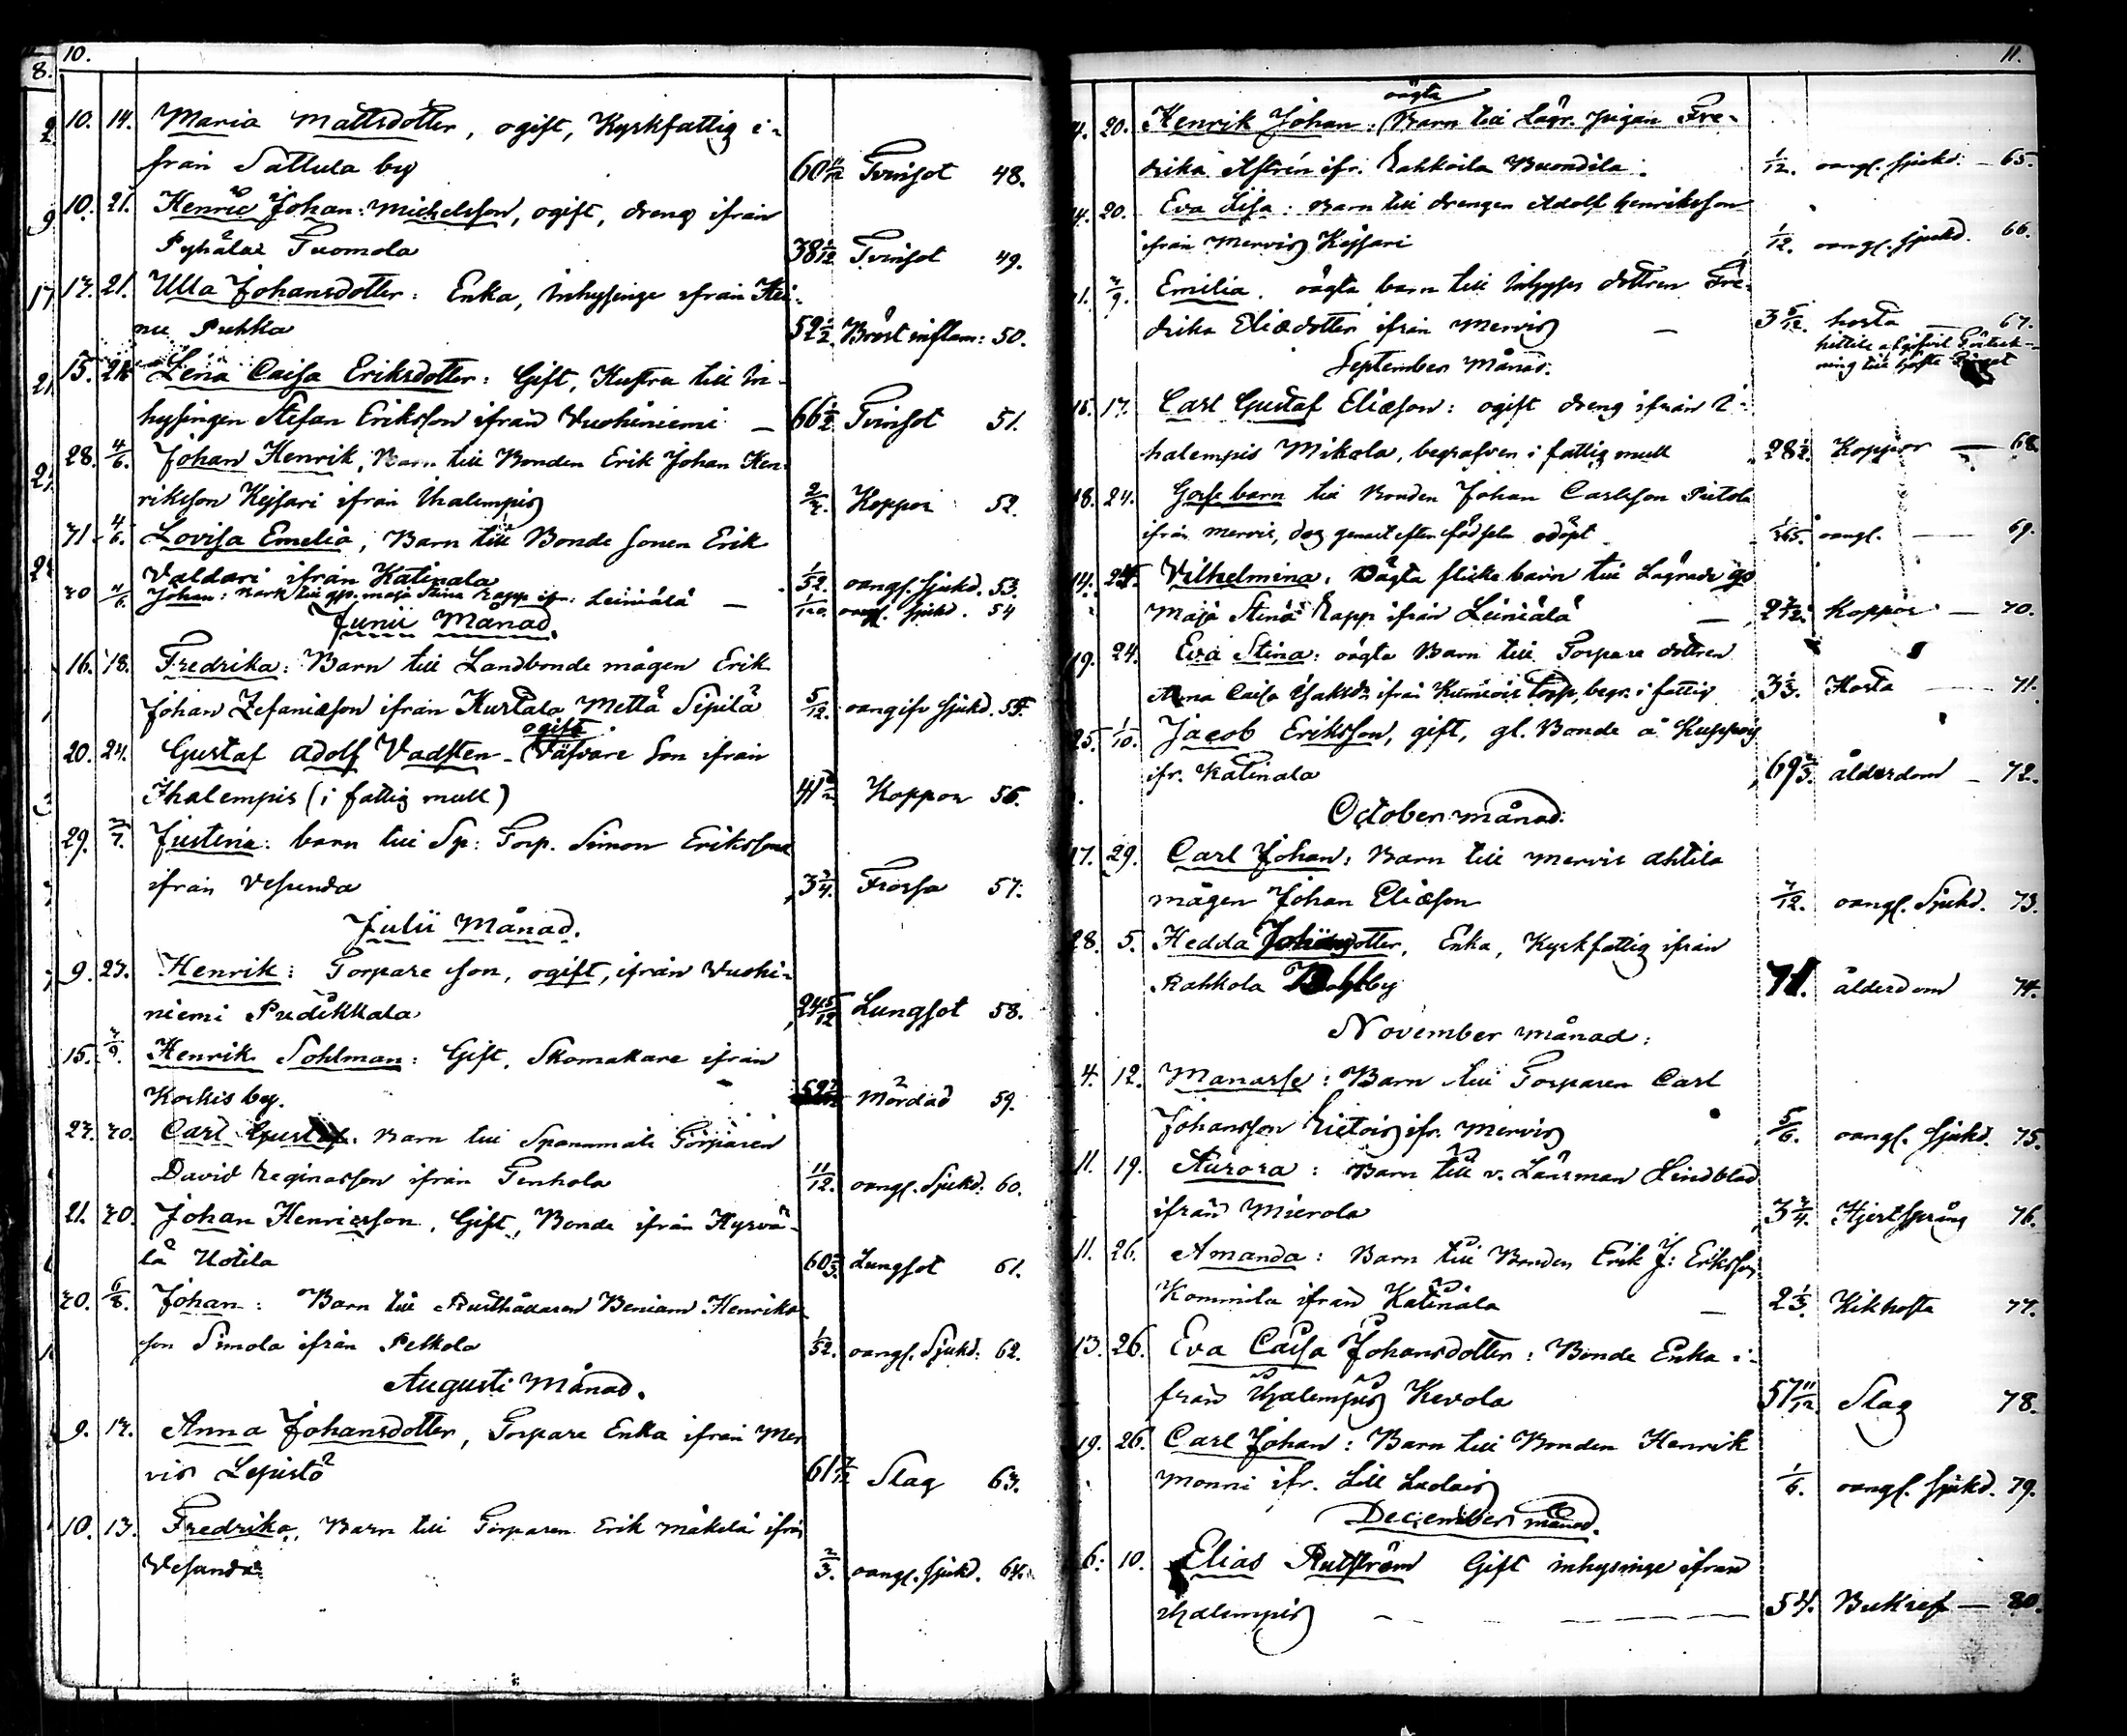 8.
10.
10. 14. Maria Mattsdotter, ogift, Kyrkfattig i-
från Sattula by 60 11/12 Tvinsot 48.
10. 21. Henric Johan Michelsson, ogift, dreng ifrån
Pyhälax Tuomola 38 1/12 Tvinsot 49.
17. 21. Ulla Johansdotter: Enka, Inhysinge ifrån Hei-
nu Pukka 52 1/2 Bröst inflam: 50.
15. Lena Caisa Eriksdotter: Gift, Hustru till In-
hysingen Stefan Eriksson ifrån Vuohiniemi — 66 1/2 Tvinsot 51.
28. 4/6. Johan Henrik, Barn till Bonden Erik Johan Hen-
riksson Kejsari ifrån Ihalempis Koppor 52.
31. 4/6. Lovisa Emelia, Barn till Bonde sonen Erik
Valdari ifrån Katinala 1/52. oangf. sjukd. 53.
30 4/6. Johan: Barn till gp. Maja Stina Rapp ifr: Leiniälä — oangf. sjukd. 54
Junii Månad.
16. 18. Fredrika: Barn till Landbonde mågen Erik
Johan Zefaniæson ifrån Kurtala Mettä Sipilä 5/12. oangifv sjukd. 55.
ogift
20. 24. Gustaf Adolf Vadsten - Väfvare Son ifrån
Ihalempis (i fattig mull) Koppor 56.
29. 3/7. Justina: barn till Sp: Torp. Simon Eriksson
ifrån Vesunda 3 3/4. Frossa 57.
Julii Månad.
9. 23. Henrik: Torpare son, ogift, ifrån Vuohi-
niemi Predikkala 24 5/12 Lungsot 58.
15. Henrik Sohlman: Gift, Skomakare ifrån
Korkis by. Mördad 59.
27. 30. Carl Gustaf: Barn till Spannmåls Torparen
David Reginasson ifrån Tenhola 11/12. oangf. Sjukd: 60.
21. 30. Johan Henricsson, Gift, Bonde ifrån Hyrvä-
lä Uotila 60 2/3. Lungsot 61.
30. 6/8. Johan: Barn till Rusthållaren Beniam Henriks-
son Simola ifrån Pelkola 1/52. oangf. Sjukd: 62.
Augusti Månad.
9. 13. Anna Johansdotter, Torpare Enka ifrån Mer
vis Lepistö 61 7/12 Slag 63.
10. 13. Fredrika, Barn till Torparen Erik Mäkelä ifrån
Vesunda 2/3. oangf. sjukd. 64.
11.
oägta
20. Henrik Johan: Barn till Lägr. pigan Fre-
drika Alftrén ifr. Rahkoila Buondila. 1/12. oangf. sjukd: — 65.
20. Eva Lisa: Barn till drengen Adolf Henriksson
ifrån Mervis Kejsari 1/12. oangf. sjukd. 66.
Emilia. oägta barn till Inhyses dottren Fre-
drika Eliædotter ifrån Mervis — 3 5/12. hosta 67.
September Månad.
17. Carl Gustaf Eliæson: ogift dreng ifrån I-
halempis Mikola, begrafven i fattig mull 28 1/2. Koppor — 68.
18. 24. Gosse barn till Bonden Johan Carlsson Pietola
ifrån Mervis, dog genast efter födseln odöpt 1/365. oangf. — 69.
14. 24. Vilhelmina, Oägta flicke barn till Lägrade gp
Maja Stina Rapp ifrån Leiniälä — Koppor — 70.
19. 24. Eva Stina: oägta Barn till Torpare dottren
Anna Caisa Isaksdr ifrån Kumiois torp, begr. i fattig 3 1/3. Hosta — 71.
25. 1/10. Jacob Eriksson, gift, gl. Bonde å Kuppois
ifr. Katinala 69 2/3. ålderdom — 72.
October månad:
17. 29. Carl Johan: Barn till Mervis Ahtila
mågen Johan Eliæson oangf. Sjukd. 73.
28. 5. Hedda Johansdotter, Enka, Kyrkfattig ifrån
Rahkola by 71. ålderdom 74.
November månad:
4. 12. Manasse: Barn till Torparen Carl
Johansson Rietois ifr. Mervis 5/6. oangf. sjukd. 75.
11. 19. Aurora: Barn till v. Länsman Lindblad
ifrån Mierola 3 3/4. Hjertsprång 76.
11. 26. Amanda: Barn till Bonden Erik J: Eriksson
Kommila ifrån Katinala — 2 1/3. Kikhosta 77.
13. 26. Eva Caisa Johansdotter: Bonde Enka i-
från Ihalempis Kevola 57 11/12 Slag 78.
19. 26. Carl Johan: Barn till Bonden Henrik
Monni ifr. Lill Luolais 1/6. oangf. sjukd. 79.
December månad.
6. 10. Elias Rutström Gift inhysinge ifrån
Ihalempis — 54. Bukref — 80.